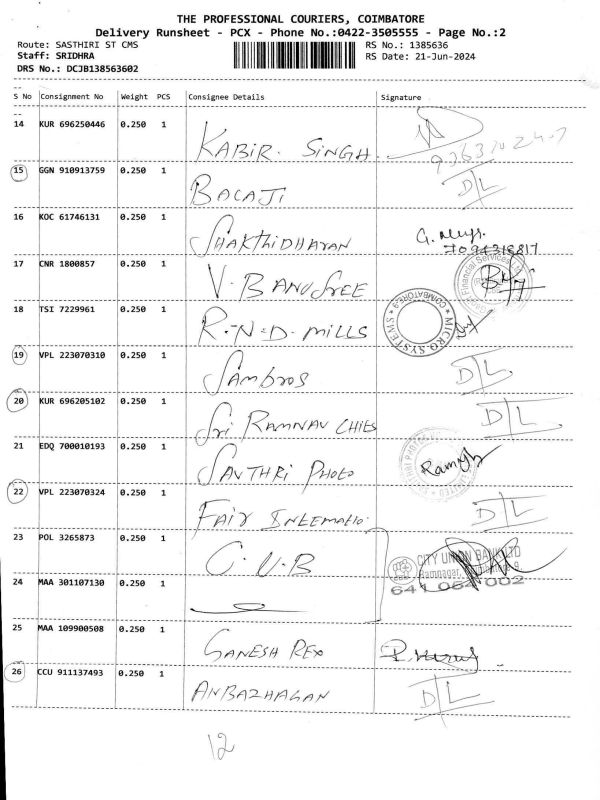 THE PROFESSIONAL COURIERS, COIMBATORE
Delivery Runsheet - PCX - Phone No.:0422-3505555 - Page No.:2
Route: SASTHIRI ST CMS RS No.: 1385636
Staff: SRIDHRA RS Date: 21-Jun-2024
DRS No.: DCJB138563602
S No Consignment No Weight PCS Consignee Details Signature
14 KUR 696250446 0.250 1 KABIR. SINGH.
15 GGN 910913759 0.250 1 BACAJI D/L
16 KOC 61746131 0.250 1 SHAKTHIDHARAN
17 CNR 1800857 0.250 1 V. BANUSREE
Financial Services
18 TSI 7229961 0.250 1 R.N.D. MILLS
MICRO SYSTEMS COIMBATORE-9
19 VPL 223070310 0.250 1 Sambros D/L
20 KUR 696205102 0.250 1 Sri RAMNAV CHIES D/L
21 EDQ 700010193 0.250 1 SAVTHRI PHOTO
22 VPL 223070324 0.250 1 FAIR INTEMATIO. D/L
23 POL 3265873 0.250 1 C.U.B
CITY UNION BANK LTD
Ramnagar,
641 002
24 MAA 301107130 0.250 1
25 MAA 109900508 0.250 1 GANESH REX
26 CCU 911137493 0.250 1 ANBAZHAGAN D/L
12